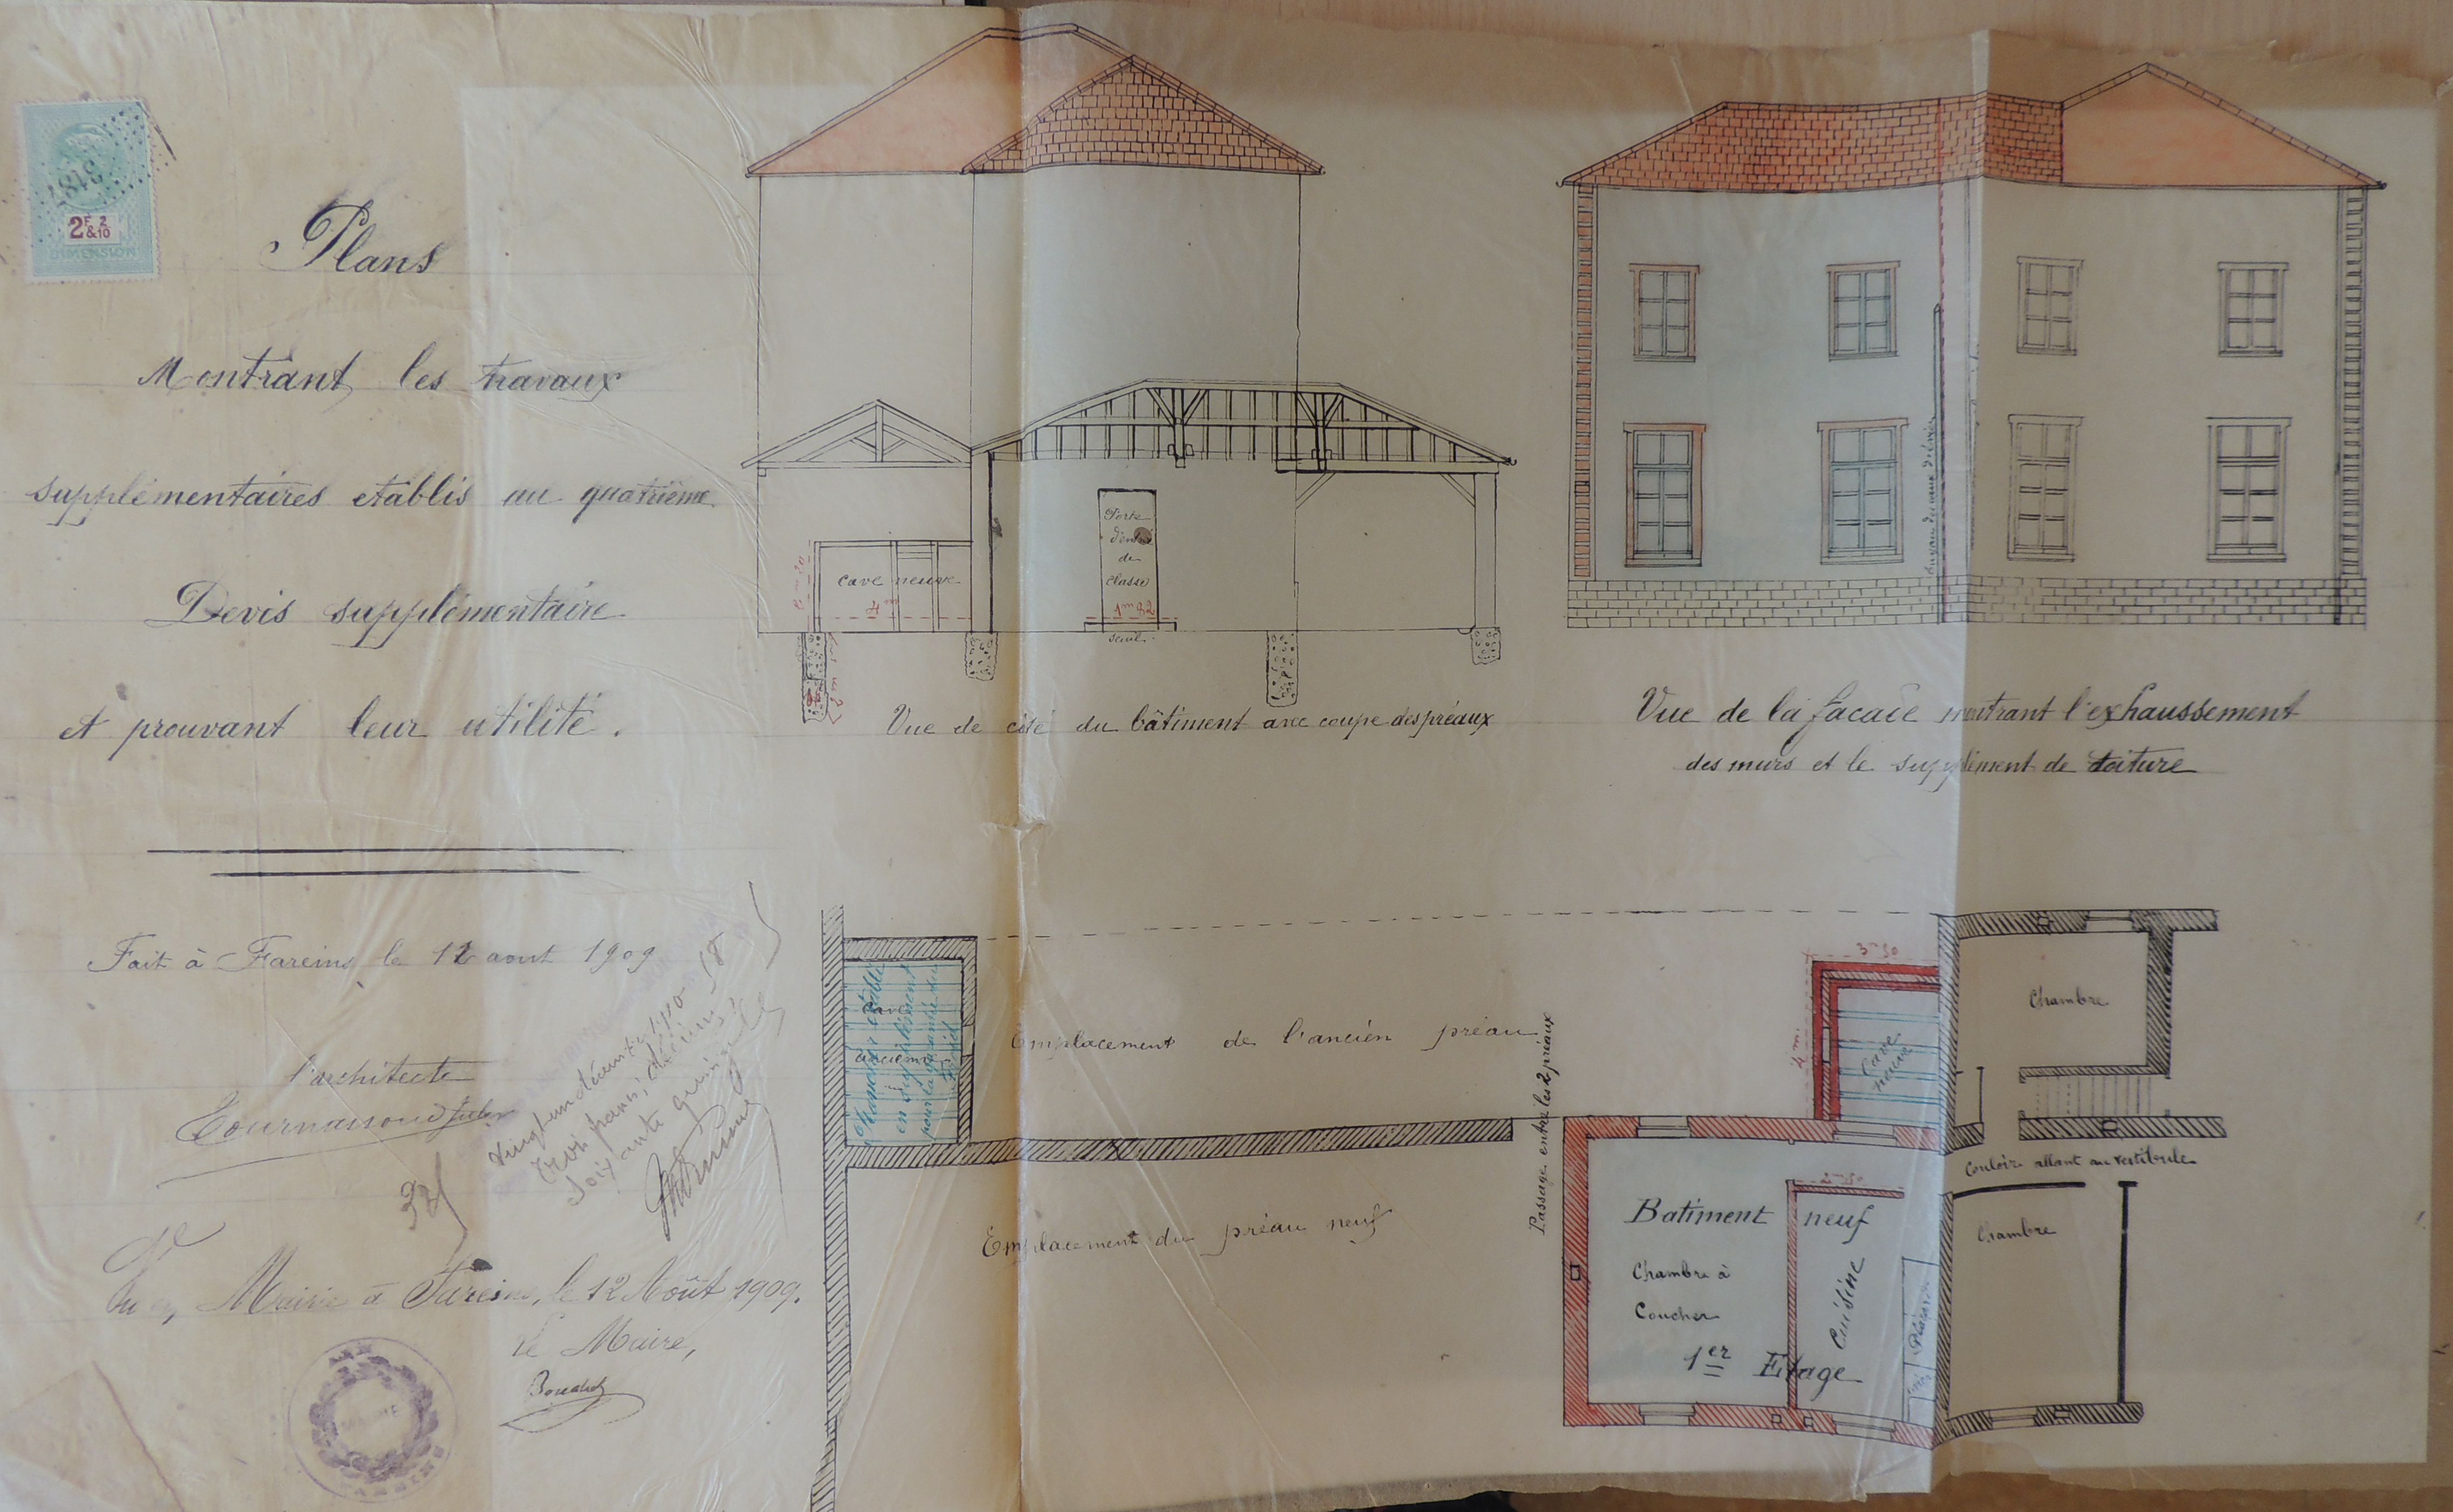 3487
2F 2
&10
DIMENSION
Plans
Montrant les travaux
supplémentaires etablis au quatrième
Devis supplémentaire
et prouvant leur utilité.
Fait à Fareins le 12 aout 1909
l'architecte
Tournassoud
trois francs,
soixante quinze
32
Vu en Mairie à Fareins, le 12 Août 1909.
Le Maire,
MAIRIE
Porte
d'entrée
de
Classe
1m 82
seuil
cave neuve
4m
Vue de côté du bâtiment avec coupe des préaux
Vue de la facade montrant l'exhaussement
des murs et le supplément de toiture
Cave
ancienne
Emplacement de l'ancien préau
Emplacement du préau neuf
Passage entre les 2 préaux
3m 50
4m
Cave
neuve
Chambre
Couloir allant au vestibule
Chambre
2m 50
Batiment neuf
Chambre à
Coucher
Cuisine
Placard
1er Etage